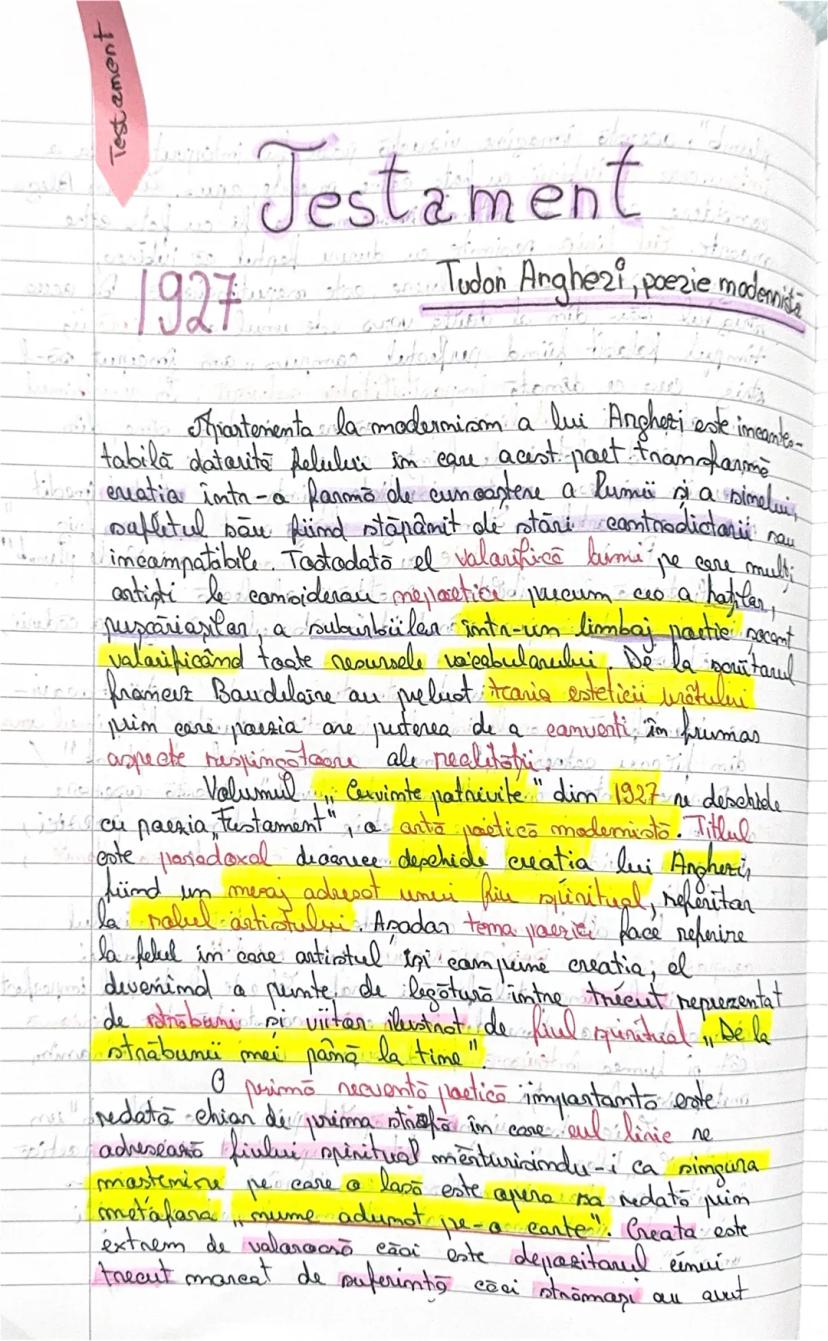 Testament
Testament
1927
Tudor Arghezi, poezie modernistă
Apartenența la modernism a lui Arghezi este incontes-
tabilă datorită felului în care acest poet transformă
creația într-o formă de cunoaștere a lumii și a sinelui,
sufletul său fiind stăpânit de stări contradictorii sau
incompatibile. Totodată el valorifică lumi pe care mulți
artiști le considerau nepoetice precum cea a hoților,
pușcăriașilor, a suburbiilor într-un limbaj poetic șocant
valorificând toate resursele vocabularului. De la scriitorul
francez Baudelaire au preluat teoria esteticii urâtului
prin care poezia are puterea de a converti în frumos
aspecte respingătoare ale realității.
Volumul „Cuvinte potrivite" din 1927 se deschide
cu poezia „Testament", o artă poetică modernistă. Titlul
este paradoxal deoarece deschide creația lui Arghezi,
fiind un mesaj adresat unui fiu spiritual, referitor
la rolul artistului. Așadar tema poeziei face referire
la felul în care artistul își compune creația, el
devenind o punte de legătură între trecut reprezentat
de străbuni și viitor ilustrat de fiul spiritual „De la
străbunii mei până la tine".
O primă secvență poetică importantă este
redată chiar de prima strofă în care eul liric se
adresează fiului spiritual mărturisindu-i ca singura
moștenire pe care o lasă este opera sa redată prin
metafora „nume adunat pe-o carte". Creata este
extrem de valoroasă căci este depozitarul unui
trecut marcat de suferință căci strămoși au avut